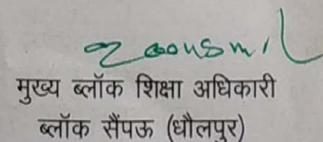 मुख्य ब्लॉक शिक्षा अधिकारी
ब्लॉक सैंपऊ (धौलपुर)